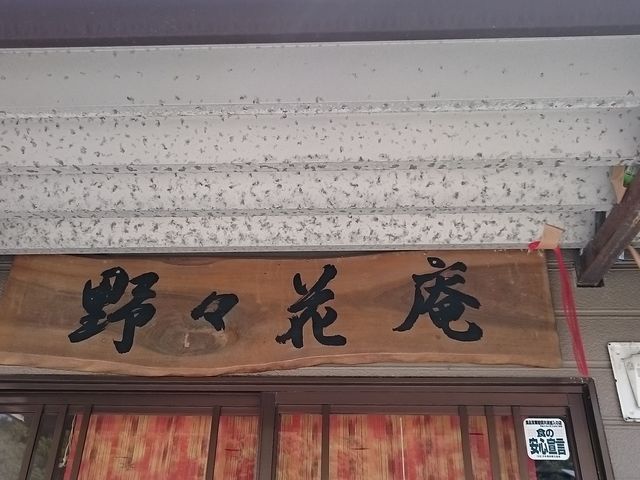 野々花庵
食の
安心宣言